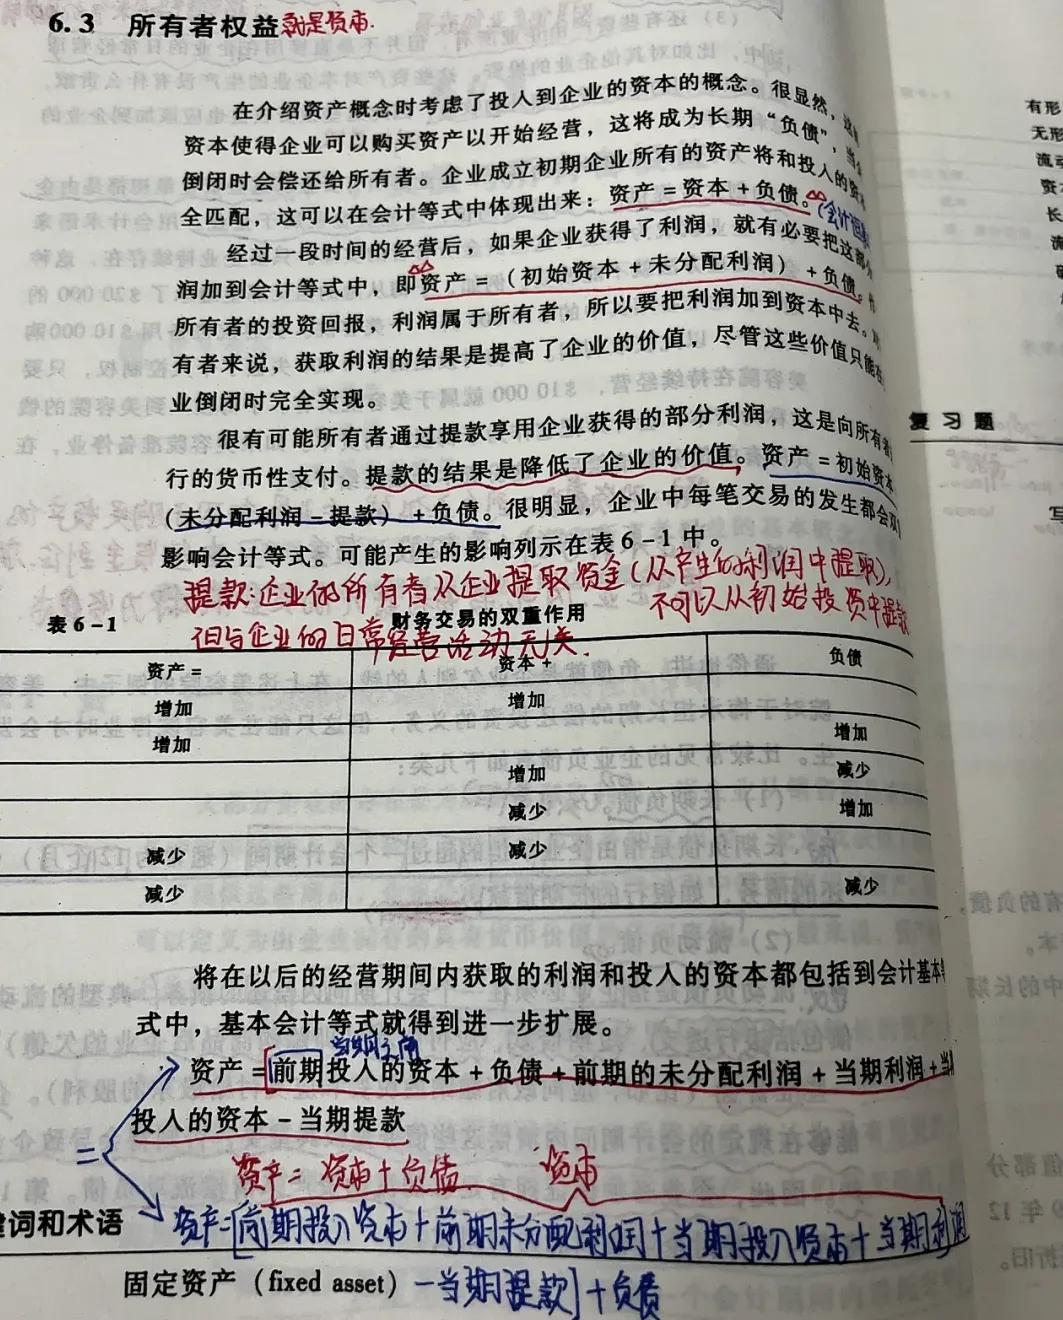 6.3 所有者权益就是资本.
在介绍资产概念时考虑了投入到企业的资本的概念。很显然,
资本使得企业可以购买资产以开始经营,这将成为长期“负债”,当
倒闭时会偿还给所有者。企业成立初期企业所有的资产将和投入的资
全匹配,这可以在会计等式中体现出来:资产=资本+负债。(会计恒
经过一段时间的经营后,如果企业获得了利润,就有必要把这部
润加到会计等式中,即资产=(初始资本+未分配利润)+负债。
所有者的投资回报,利润属于所有者,所以要把利润加到资本中去。
有者来说,获取利润的结果是提高了企业的价值,尽管这些价值只能在
业倒闭时完全实现。
很有可能所有者通过提款享用企业获得的部分利润,这是向所有者
行的货币性支付。提款的结果是降低了企业的价值。资产=初始资本
(未分配利润-提款)+负债。很明显,企业中每笔交易的发生都会双
影响会计等式。可能产生的影响列示在表6-1中。
提款:企业的所有者从企业提取资金(从产生的利润中提取),
不可以从初始投资中提款
但与企业的日常经营活动无关.
表6-1 财务交易的双重作用
资产= 资本+ 负债
增加 增加
增加 增加
增加 减少
减少 增加
减少 减少
减少 减少
将在以后的经营期间内获取的利润和投入的资本都包括到会计基本
式中,基本会计等式就得到进一步扩展。
资产=前期投入的资本+负债+前期的未分配利润+当期利润+当
投入的资本-当期提款
= 资产=资本+负债 资本
键词和术语
资产=[前期投入资本+前期未分配利润+当期投入资本+当期利润
固定资产(fixed asset) -当期提款]+负债
有形
无形
流动
资
长
流
复习题
写
有的负债,
本。
中的长期
值部分
9年12
折旧。